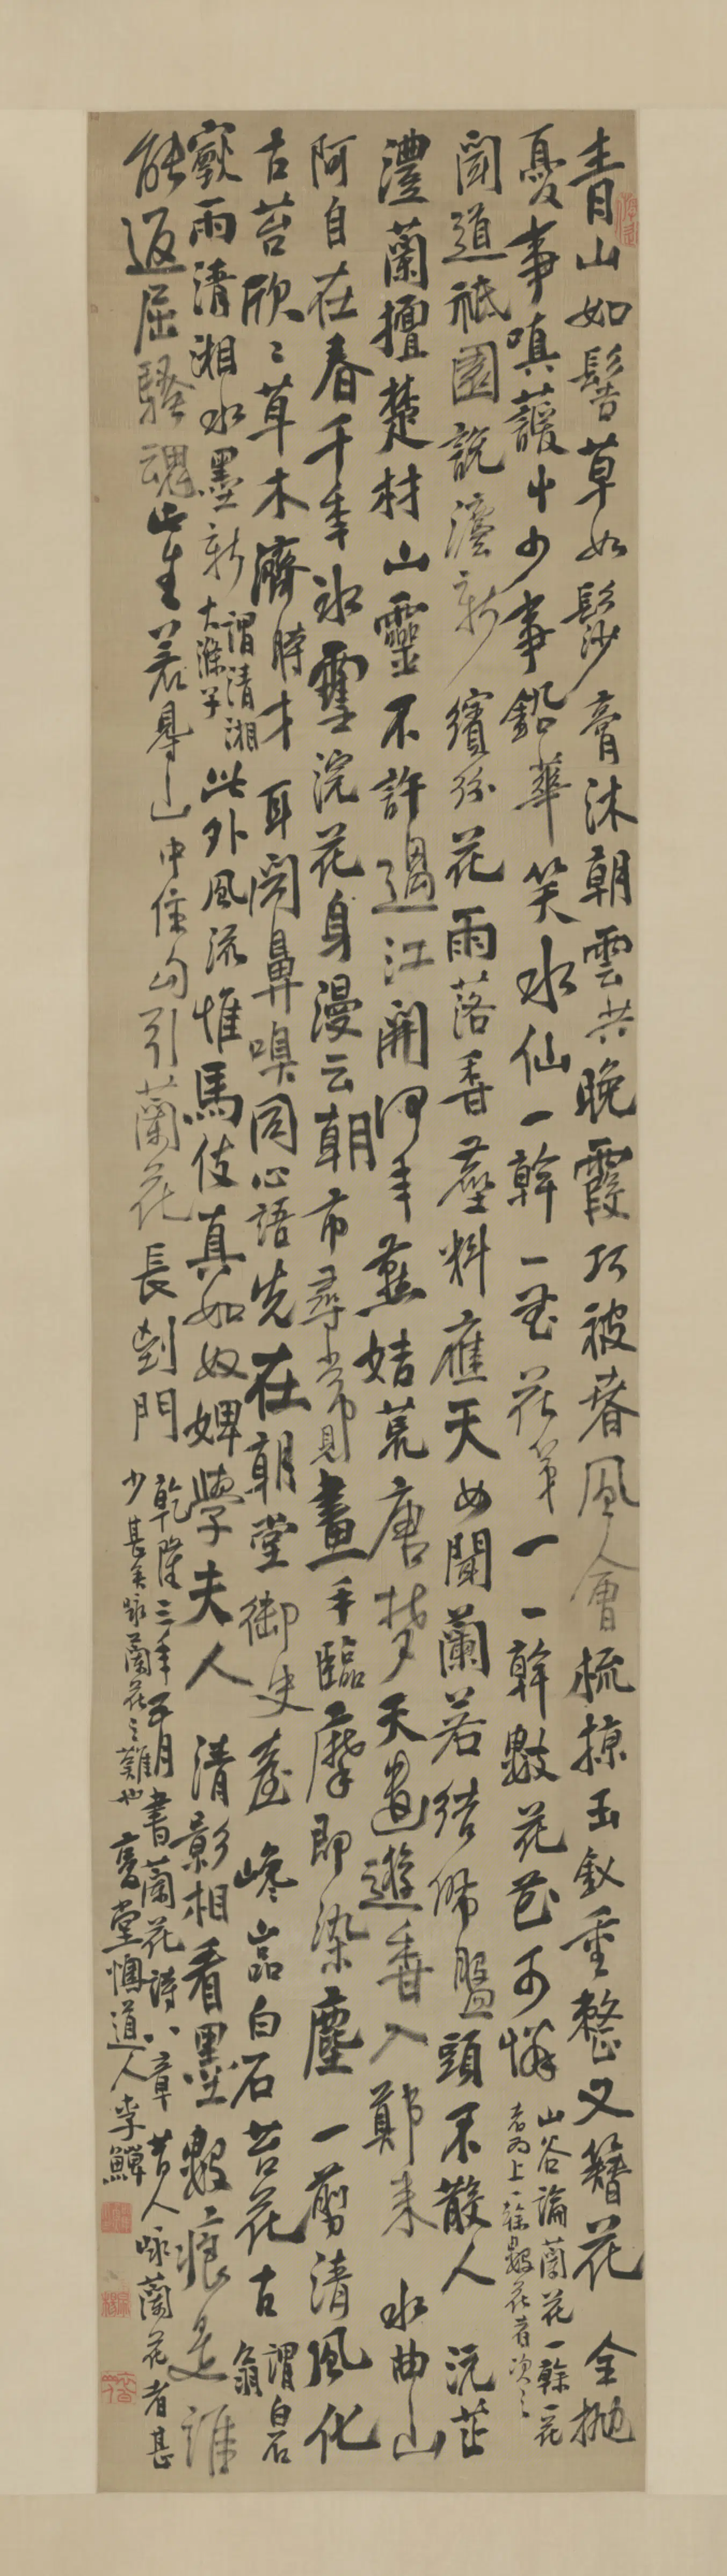 青山如髻草如鬆膏沐朝雲共晚霞巧被春風會梳掠玉釵重整又簪花 全拋
憂事嗔萱草少事鉛華笑水仙一幹一花花第一一幹數花花可憐 山谷論蘭花一幹一花
者為上一幹數花者次之
聞道祇園說法新繽紛花雨落香塵料應天女聞蘭若結佛盤頭不散人 沅芷
澧蘭擅楚材山靈不許過江開何年燕姞荒唐夢天遣遊香入鄭來 水曲山
阿自在春千年冰雪浣花身漫云朝市尋常見畫手臨摩即染塵 一剪清風化
古苔欣〻草木濟時才耳聞鼻嗅同心語先在朝堂御史臺 巉巖白石苔花古 謂白石
翁
寥雨清湘水墨新 謂清湘
大滌子 此外風流惟馬伎真如奴婢學夫人 清影相看墨數痕是誰
能返屈騷魂崖差尋山中住勾引蘭花長到門 乾隆三年五月書蘭花詩八章昔人咏蘭花者甚
少甚矣咏蘭花之難也 䕫堂懊道人李鱓